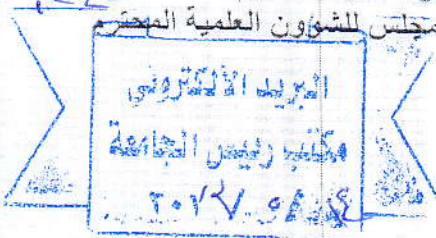 مجلس للشؤون العلمية المحترم
البريد الألكتروني
مكتب رئيس الجامعة